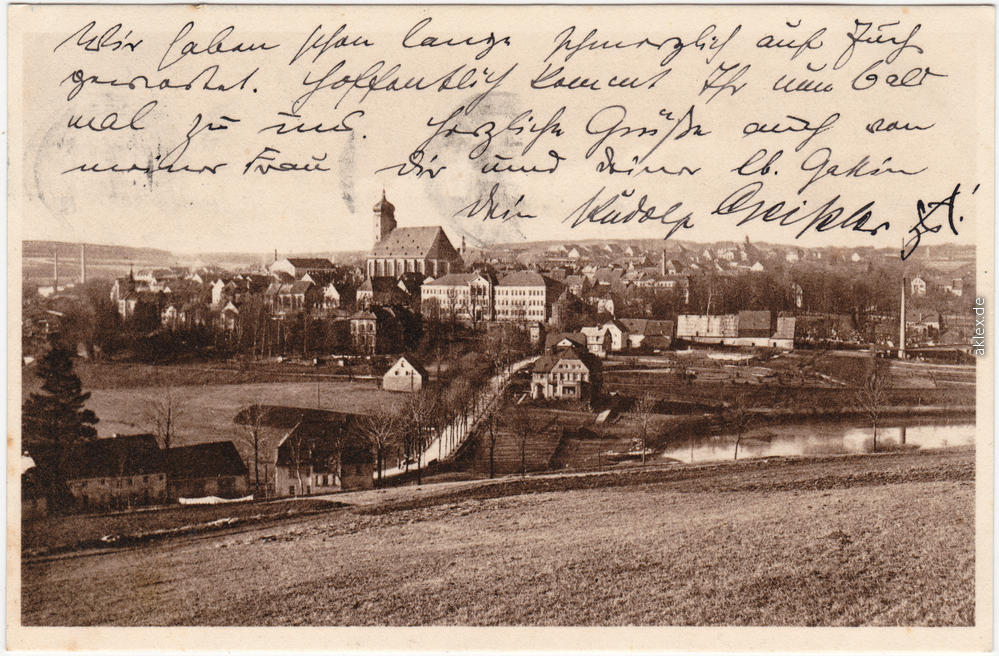 Wir haben schon lange schmerzlich auf Euch
gewartet. Hoffentlich kommt Ihr nun bald
mal zu uns. Herzliche Grüße auch von
meiner Frau Dir und Deiner lb. Gattin
Dein Rudolf
aklex.de